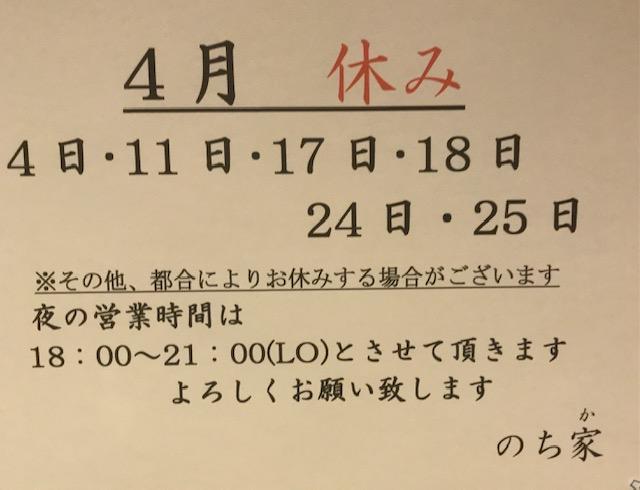 4月　休み
4日・11日・17日・18日
24日・25日
※その他、都合によりお休みする場合がございます
夜の営業時間は
18：00～21：00(LO)とさせて頂きます
よろしくお願い致します
か
のち家